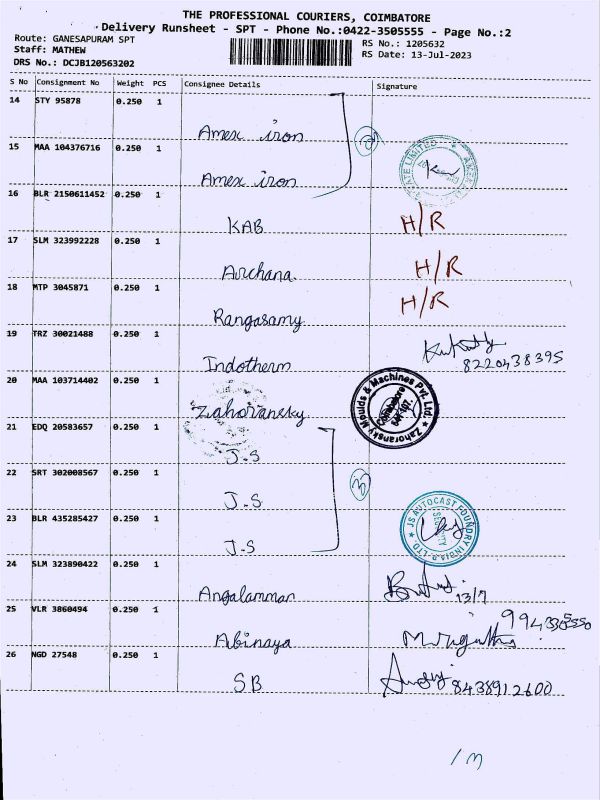 THE PROFESSIONAL COURIERS, COIMBATORE
Delivery Runsheet - SPT - Phone No.:0422-3505555 - Page No.:2
Route: GANESAPURAM SPT
RS No.: 1205632
Staff: MATHEW
RS Date: 13-Jul-2023
DRS No.: DCJB120563202
S No Consignment No Weight PCS Consignee Details Signature
14 STY 95878 0.250 1
Amex iron
15 MAA 104376716 0.250 1
Amex iron
16 BLR 2150611452 0.250 1
KAB H/R
17 SLM 323992228 0.250 1
Archana H/R
18 MTP 3045871 0.250 1
Rangasamy H/R
19 TRZ 30021488 0.250 1
Indotherm 8220438395
20 MAA 103714402 0.250 1
Zahoransky
Zahoransky Moulds & Machines Pvt. Ltd.
Coimbatore
641 107.
21 EDQ 20583657 0.250 1
J.S
22 SRT 302008567 0.250 1
J.S
3
23 BLR 435285427 0.250 1
J.S
JS AUTOCAST FOUNDRY INDIA P. LTD
Security
24 SLM 323890422 0.250 1
Angalamman 13/7
25 VLR 3860494 0.250 1
Abinaya
26 NGD 27548 0.250 1
SB 8438912600